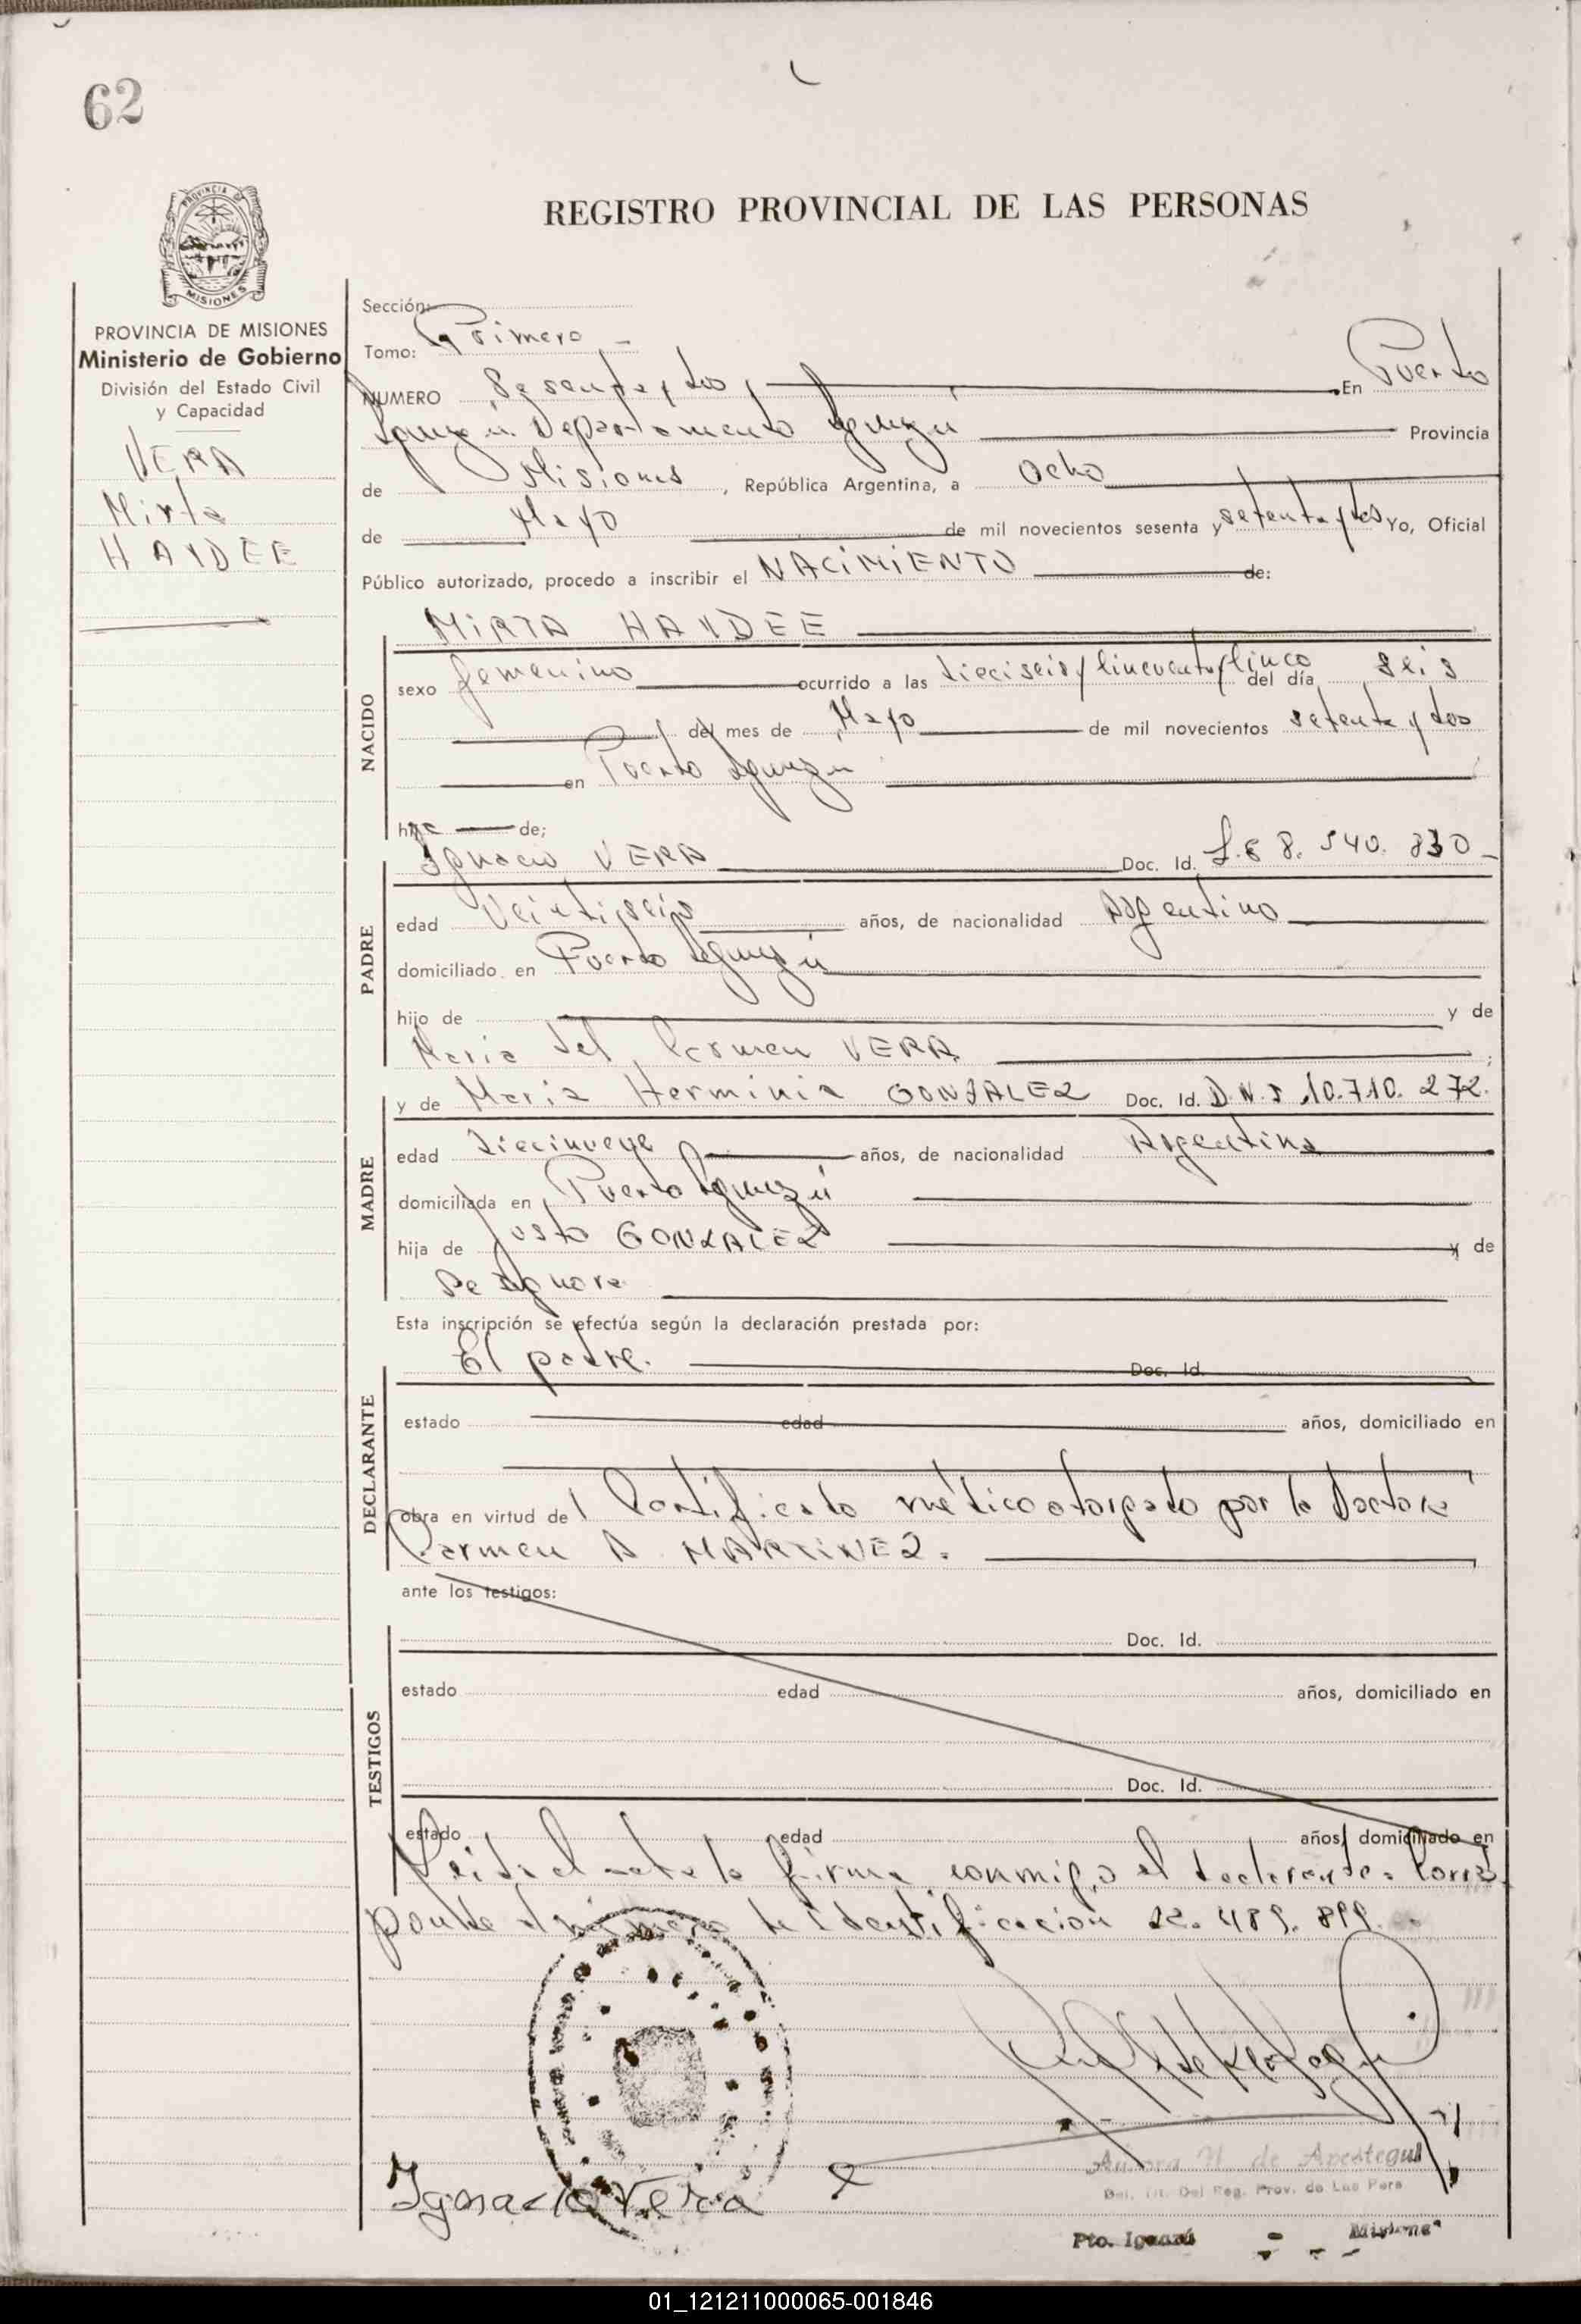 62
PROVINCIA DE
MISIONES
REGISTRO PROVINCIAL DE LAS PERSONAS
PROVINCIA DE MISIONES
Ministerio de Gobierno
División del Estado Civil
y Capacidad
VERA
Mirta
HAYDEE
Sección:
Tomo: Primero
NUMERO Sesenta y dos En Puerto
Iguazú Departamento Iguazú Provincia
de Misiones, República Argentina, a Ocho
de Mayo de mil novecientos sesenta y setenta y dos Yo, Oficial
Público autorizado, procedo a inscribir el NACIMIENTO de:
NACIDO
MIRTA HAYDEE
sexo femenino ocurrido a las dieciseis y cincuenta y cinco del día seis
del mes de Mayo de mil novecientos setenta y dos
en Puerto Iguazu
hija de;
PADRE
Ignacio VERA Doc. Id. L.E 8. 540. 830
edad Veintiseis años, de nacionalidad Argentino
domiciliado en Puerto Iguazú
hijo de y de
Maria del Carmen VERA ;
MADRE
y de Maria Herminia GONZALEZ Doc. Id. D.N.I 10.710. 272.
edad diecinueve años, de nacionalidad Argentina
domiciliada en Puerto Iguazú
hija de Justo GONZALEZ y de
Se Ignora
Esta inscripción se efectúa según la declaración prestada por:
DECLARANTE
El padre. Doc. Id.
estado edad años, domiciliado en
obra en virtud de Certificado médico otorgado por la Doctora
Carmen A MARTINEZ.
ante los testigos:
TESTIGOS
Doc. Id.
estado edad años, domiciliado en
Doc. Id.
estado edad años, domiciliado en
Leida el acta la firma conmigo el declarante. Corres
ponde el número de identificacion 22. 489. 899.
Aurora H. de Apestegui
Del. Tit. Del Reg. Prov. de Las Pers
Ignacio Vera
Pto. Iguazú - Misiones
01_121211000065-001846